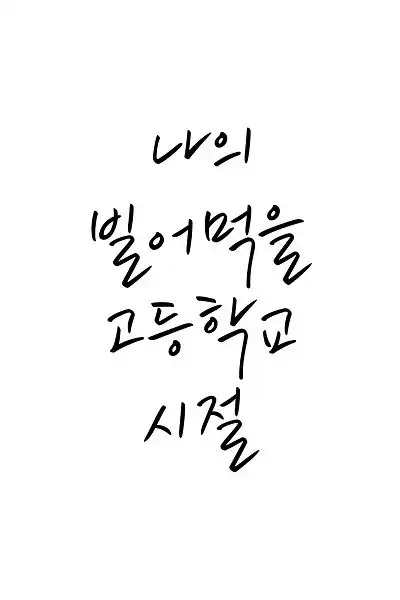 나의
빌어먹을
고등학교
시절